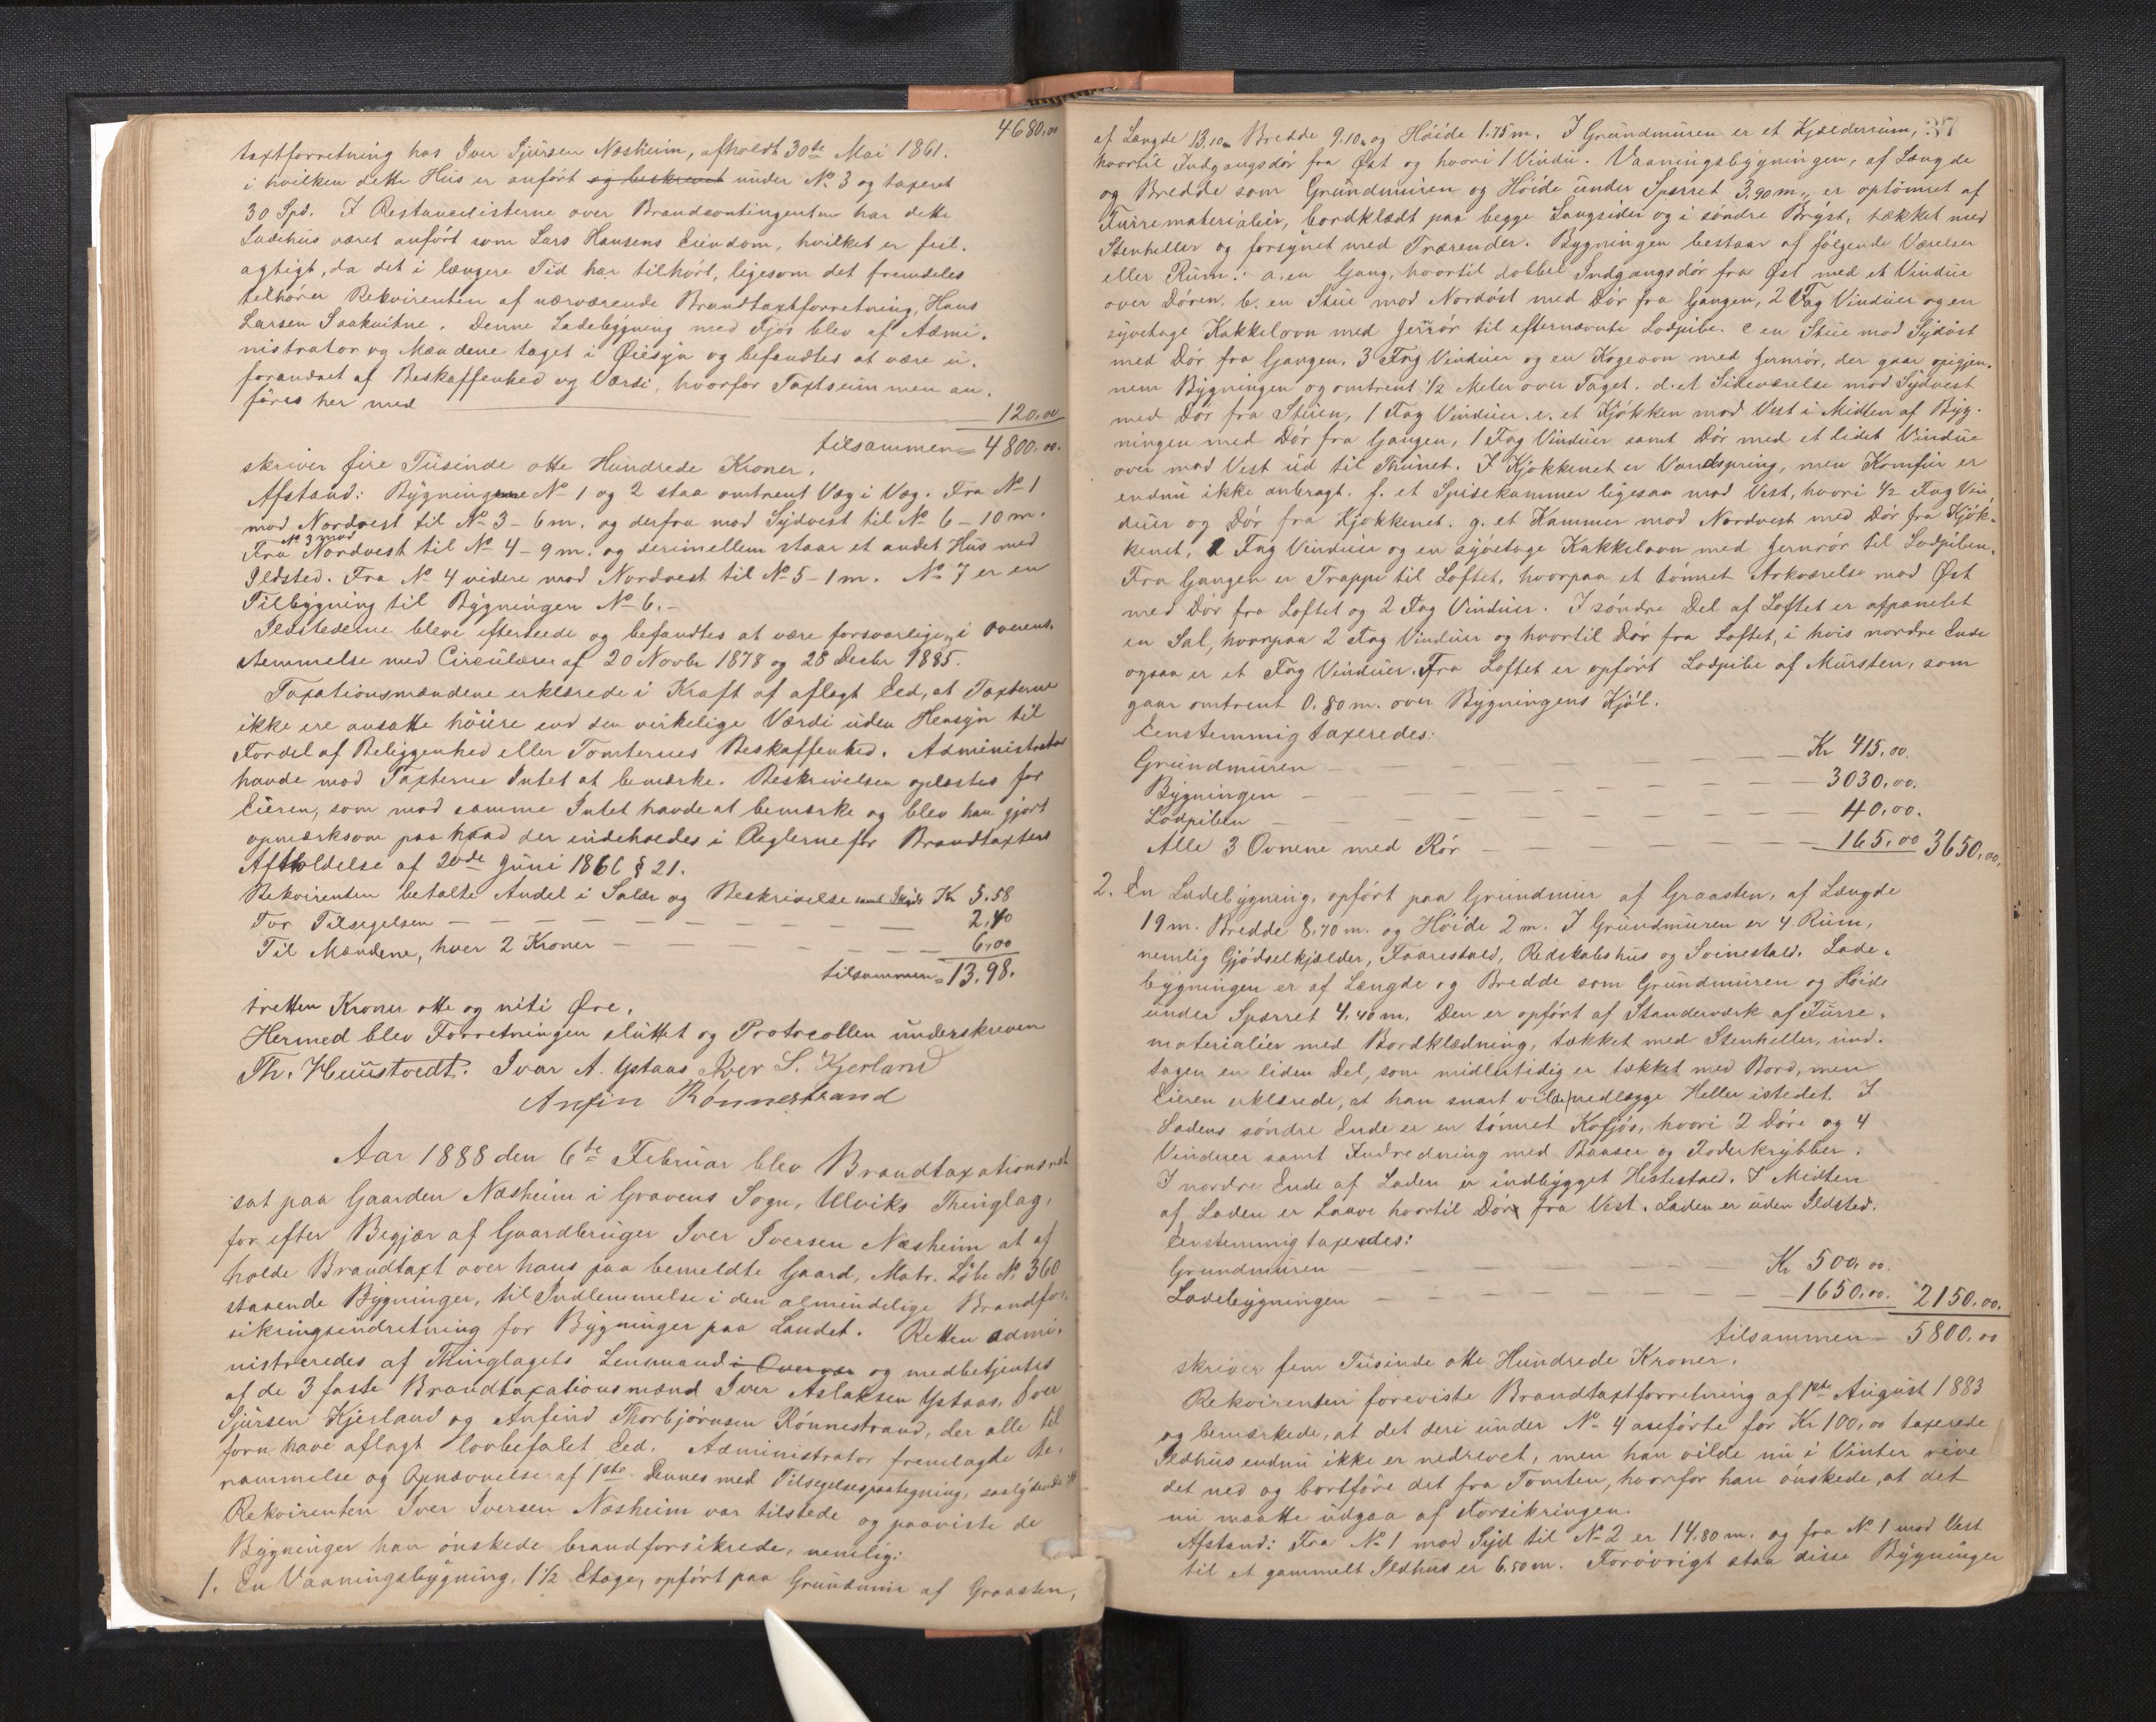 4680,00
taxtforretning hos Iver Sjursen Næsheim, afholdt 30te Mai 1861.
i hvilken dette Hus er anført og beskrevet under No 3 og taxeret
30 Spd. I Restancelisterne over Brandcontingenten har dette
Ladehus været anført som Lars Hansens Eiendom, hvilket er feil-
agtigt, da det i længere Tid har tilhørt, ligesom det fremdeles
tilhører Rekvirenten af nærværende Brandtaxtforretning, Hans
Larsen Saakvitne. Denne Ladebygning med Fjøs blev af Admi-
nistrator og Mændene taget i Øiesyn og befandtes at være u-
forandret af Beskaffenhed og Værdi, hvorfor Taxtsummen an-
føres her med
120,00
tilsammen = 4800,00.
skriver fire Tusinde otte Hundrede Kroner.
Afstand: Bygningerne No 1 og 2 staa omtrent Væg i Væg. Fra No 1
mod Nordvest til No 3 - 6 m. og derfra mod Sydvest til No 6 - 10 m.
No 3 mod
Fra Nordvest til No 4 - 9 m. og derimellem staar et andet Hus med
Ildsted. Fra No 4 videre mod Nordvest til No 5 - 1 m. No 7 er en
Tilbygning til Bygningen No 6. -
Ildstederne bleve efterseede og befandtes at være forsvarlige, i Overens-
stemmelse med Circulærer af 20 Novbr 1878 og 28 Decbr 1885.
Taxationsmændene erklærede i Kraft af aflagt Eed, at Taxterne
ikke ere ansatte høiere end den virkelige Værdi uden Hensyn til
Fordel af Beliggenhed eller Tomternes Beskaffenhed. Administrator
havde mod Taxterne Intet at bemærke. Beskrivelsen oplæstes for
Eieren, som mod samme Intet havde at bemærke og blev han gjort
opmærksom paa hvad der indeholdes i Reglerne for Brandtaxters
Afholdelse af 20de Juni 1861 § 21.
Rekvirenten betalte Andel i Salær og Beskrivelse samt Skyds Kr 5.58
For Tilsigelsen 2.40
Til Mændene, hver 2 Kroner 6,00
tilsammen = 13,98.
tretten Kroner otte og niti Øre.
Hermed blev Forretningen sluttet og Protocollen underskreven
Th. Huustvedt. Ivar A. Ystaas Iver S. Kjerland
Anfin Rønnestrand
Aar 1888 den 6te Februar blev Brandtaxationsret
sat paa Gaarden Næsheim i Gravens Sogn, Ulviks Thinglag,
for efter Begjær af Gaardbruger Iver Iversen Næsheim at af
holde Brandtaxt over hans paa bemeldte Gaard, Matr. Løbe No 360
staaende Bygninger, til Indlemmelse i den almindelige Brandfor-
sikringsindretning for Bygninger paa Landet. Retten admi-
nistreredes af Thinglagets Lensmand i Overvær og medbetjentes
af de 3 faste Brandtaxationsmænd Iver Aslaksen Ystaas, Iver
Sjursen Kjerland og Anfind Thorbjørnsen Rønnestrand, der alle til
forn have aflagt lovbefalet Eed. Administrator fremlagde Be-
rammelse og Opnævnelse af 1ste Dennes med Tilsigelsespaategning, saalydende
Rekvirenten Iver Iversen Næsheim var tilstede og paaviste de
Bygninger han ønskede brandforsikrede, nemlig:
1. En Vaaningsbygning, 1 1/2 Etage, opført paa Grundmur af Graasten,
37
af Længde 13,10 m Bredde 9,10 og Høide 1.75 m. I Grundmuren er et Kjælderrum,
hvortil Indgangsdør fra Øst og hvori 1 Vindu. Vaaningsbygningen, af Længde
og Bredde som Grundmuren og Høide under Sperret 3,90 m., er optømret af
Furrematerialier, bordklædt paa begge Langsider og i søndre Bryst, tækket med
Stenheller og forsynet med Trærender. Bygningen bestaar af følgende Værelser
eller Rum: a. en Gang, hvortil dobbel Indgangsdør fra Øst med et Vindue
over Døren. b. en Stue mod Nordøst med Dør fra Gangen, 2 Fag Vinduer og en
syvetage Kakkelovn med Jernrør til efternævnte Lodpibe. c en Stue mod Sydøst
med Dør fra Gangen, 3 Fag Vinduer og en Kogeovn med Jernrør, der gaar opigjen-
nem Bygningen og omtrent 1/2 Meter over Taget. d. et Sideværelse mod Sydvest
med Dør fra Stuen, 1 Fag Vinduer. e. et Kjøkken mod Vest i Midten af Byg-
ningen med Dør fra Gangen, 1 Fag Vinduer samt Dør med et lidet Vindue
over mod Vest ud til Thunet. I Kjøkkenet er Vandspring, men Komfur er
endnu ikke anbragt. f. et Spisekammer ligesaa mod Vest, hvori 1/2 Fag Vin
duer og Dør fra Kjøkkenet. g. et Kammer mod Nordvest med Dør fra Kjøk-
kenet, 2 Fag Vinduer og en syvetage Kakkelovn med Jernrør til Lodpiben.
Fra Gangen er Trappe til Loftet, hvorpaa et tømret Arkværelse mod Øst
med Dør fra Loftet og 2 Fag Vinduer. I søndre Del af Loftet er afpanelet
en Sal, hvorpaa 2 Fag Vinduer og hvortil Dør fra Loftet, i hvis nordre Ende
ogsaa er et Fag Vinduer. Fra Loftet er opført Lodpibe af Mursten, som
gaar omtrent 0.80 m. over Bygningens Kjøl.
Eenstemmig taxeredes:
Grundmuren Kr 415,00.
Bygningen 3030,00.
Lodpiben 40,00.
Alle 3 Ovnene med Rør 165,00 3650,00.
2. En Ladebygning, opført paa Grundmur af Graasten, af Længde
19 m. Bredde 8,70 m. og Høide 2 m. I Grundmuren er 4 Rum,
nemlig Gjødselkjælder, Faarestald, Redskabshus og Svinestald. Lade-
bygningen er af Længde og Bredde som Grundmuren og Høide
under Sperret 4,40 m. Den er opført af Standerværk af Furre-
materialier med Bordklædning, tækket med Stenheller, und-
tagen en liden Del, som midlertidig er tækket med Bord, men
Eieren erklærede, at han snart vilde nedlægge Heller istedet. I
Ladens søndre Ende er en tømret Kofjøs, hvori 2 Døre og 4
Vinduer samt Indredning med Baaser og Foderkrybber.
I nordre Ende af Laden er indbygget Hestestald. I Midten
af Laden er Laave hvortil Dør fra Vest. Laden er uden Ildsted.
Eenstemmig taxeredes:
Grundmuren Kr 500,00.
Ladebygningen 1650,00. 2150,00.
tilsammen = 5800,00
skriver fem Tusinde otte Hundrede Kroner.
Rekvirenten foreviste Brandtaxtforretning af 1ste August 1883
og bemærkede, at det deri under No 4 anførte for Kr 100,00 taxerede
Ildhus endnu ikke er nedrevet, men han vilde nu i Vinter rive
det ned og bortføre det fra Tomten, hvorfor han ønskede, at det
nu maatte udgaa af Forsikringen.
Afstand: Fra No 1 mod Syd til No 2 er 14,80 m. og fra No 1 mod Vest
til et gammelt Ildhus er 6,50 m. Forøvrigt staa disse Bygninger